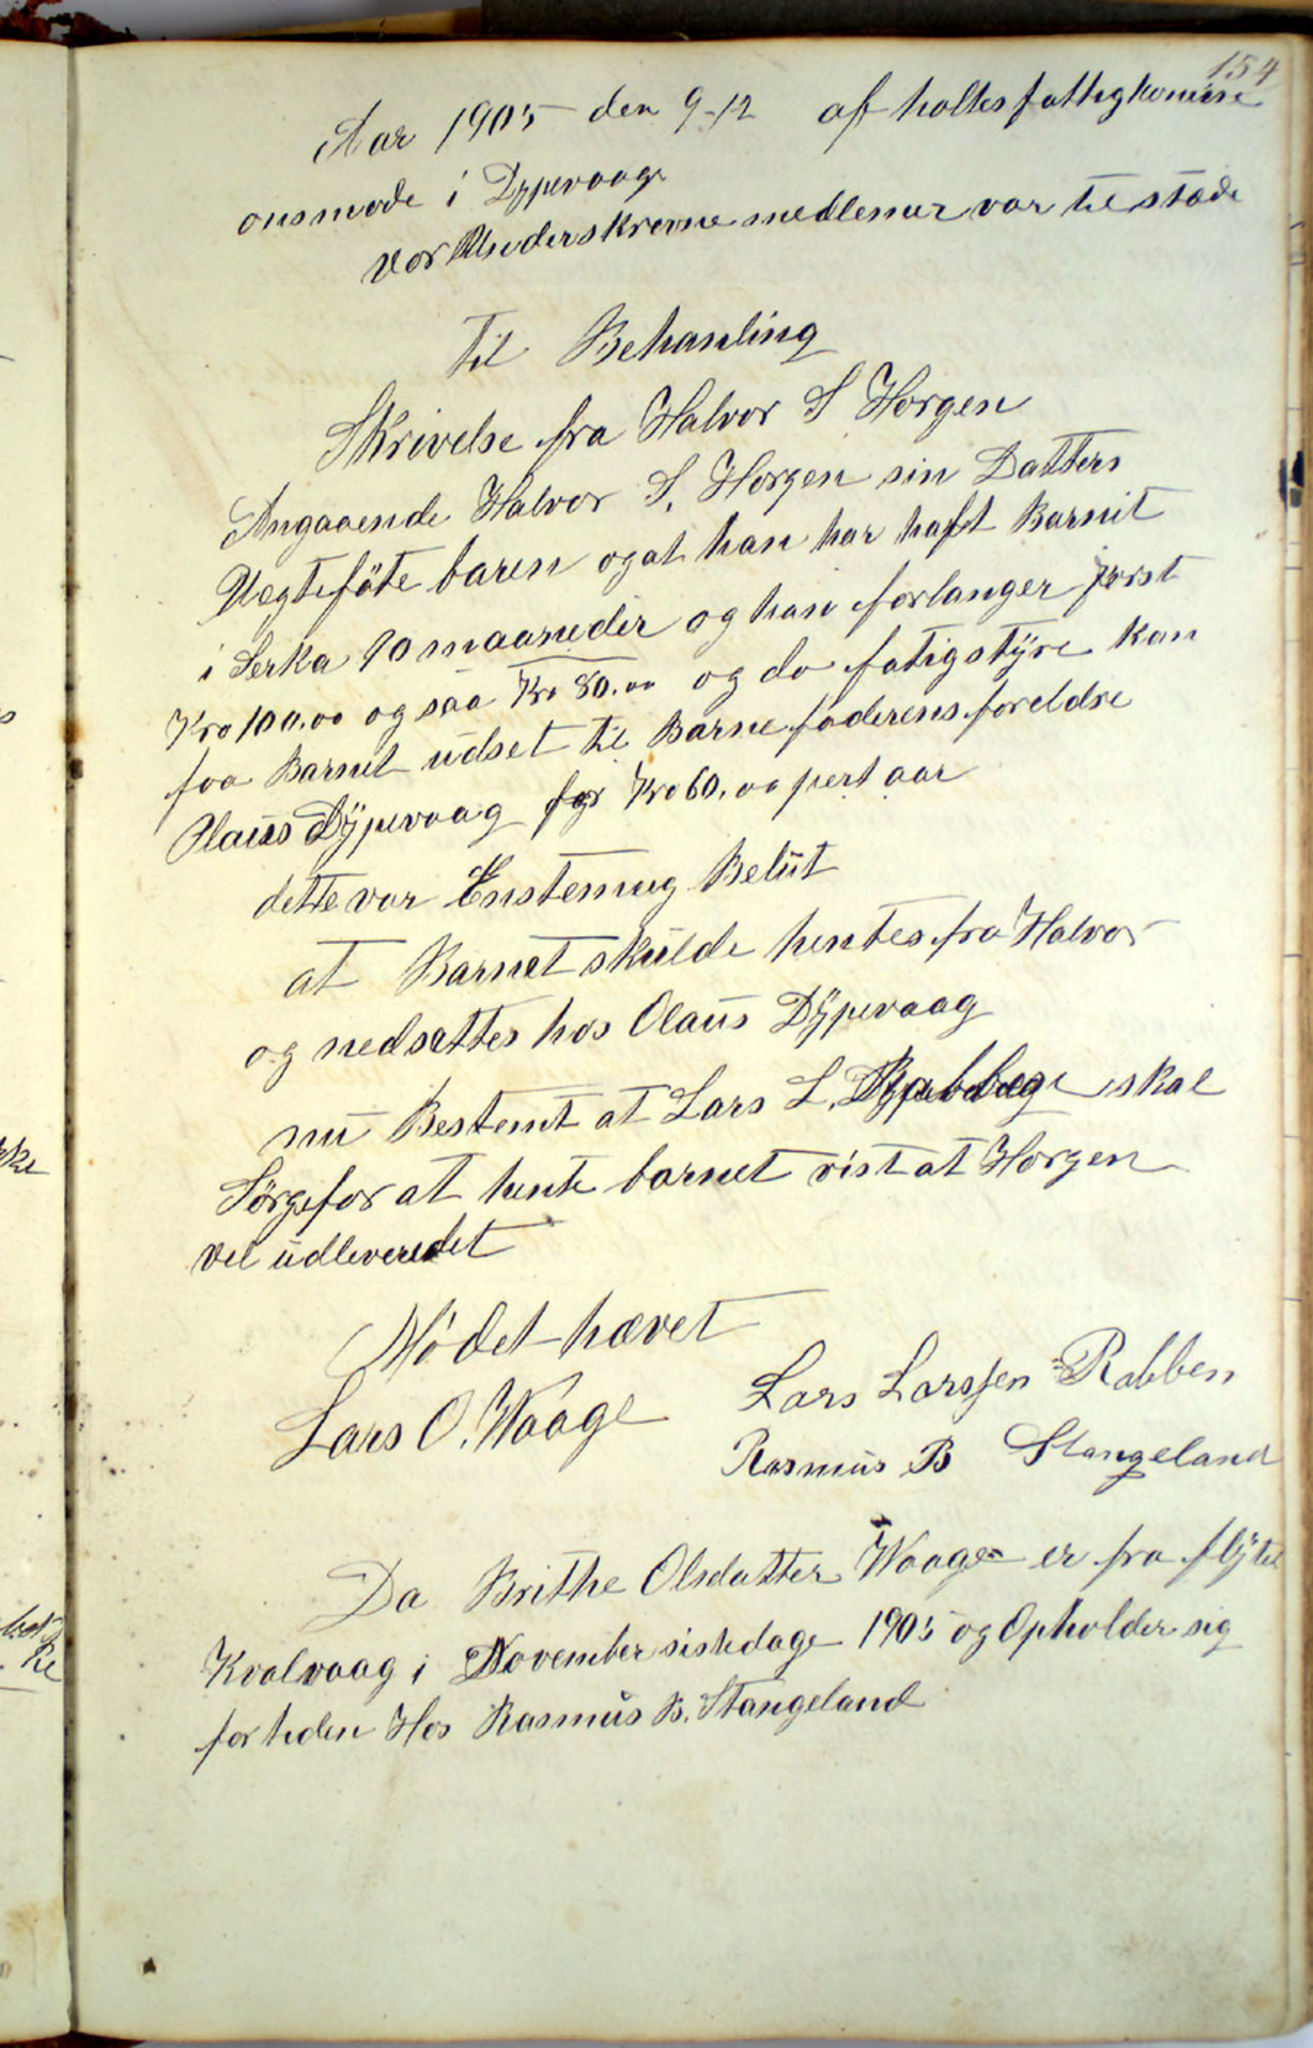 154
Aar 1905 den 9-12 af holtes fattigkomisi
onsmøde i Dypevaag
vor Underskrevne medlemer var til stæde
Til Behanling
Skrivelse fra Halvor S Horgen
Angaaende Halvor S. Horgen sin Datters
Uegtefôte baren og at han har haft Barnit
i Serka 10 maaneder og han forlanger først
Kro 100.00 og saa Kro 80.00 og da fatigstÿre kan
faa Barnet udset til Barnefaderens foreldre
Olaus Dÿpevaag for Kro 60.00 pert aar
dette var Enstemug Belut
at Barnet skulde hentes fra Halvor
og nedsattes hos Olaus Dÿpevaag
nu Bestemt at Lars L. skal
Sörge for at hente barnet vist at Horgen
vel udleveredet
Mödet hævet
Lars O. Waage Lars Larssen Rabben
Rasmus B Stangeland
Da Brithe Olsdatter Waage er fra flÿtet
Kvalvaag i November sistedage 1905 og Opholder sig
for tiden Hos Rasmus B. Stangeland